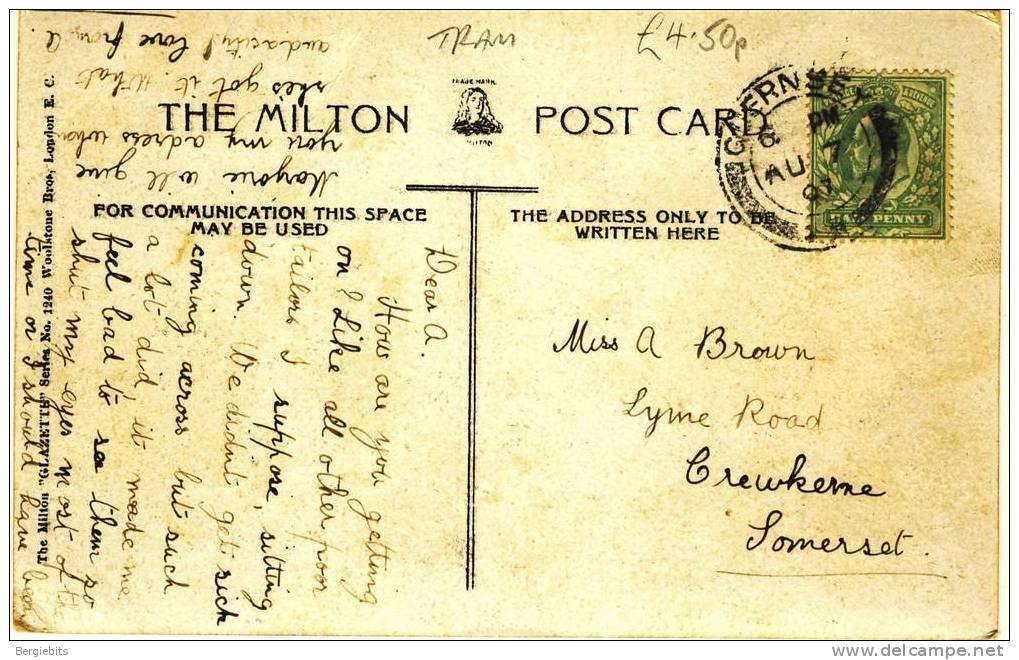 TRAM
£4.50p
THE MILTON
TRADE MARK
MILTON
POST CARD
GUERNSEY
6 PM
AU 7
07
HALFPENNY
FOR COMMUNICATION THIS SPACE
MAY BE USED
THE ADDRESS ONLY TO BE
WRITTEN HERE
Miss A Brown
Lyme Road
Crewkerne
Somerset.
Dear A.
How are you getting
on? Like all other poor
tailors I suppose, sitting
down. We didnt get sick
coming across but such
a lot did, it made me
feel bad to see them so
shut my eyes most of the
time or I should have been
Marjorie will give
you my adress when
she's got it. What
audacity! love from
The Milton "GLAZETTE" Series No. 1240 Woolstone Bros., London E. C.
Bergiebits
delcampe.net